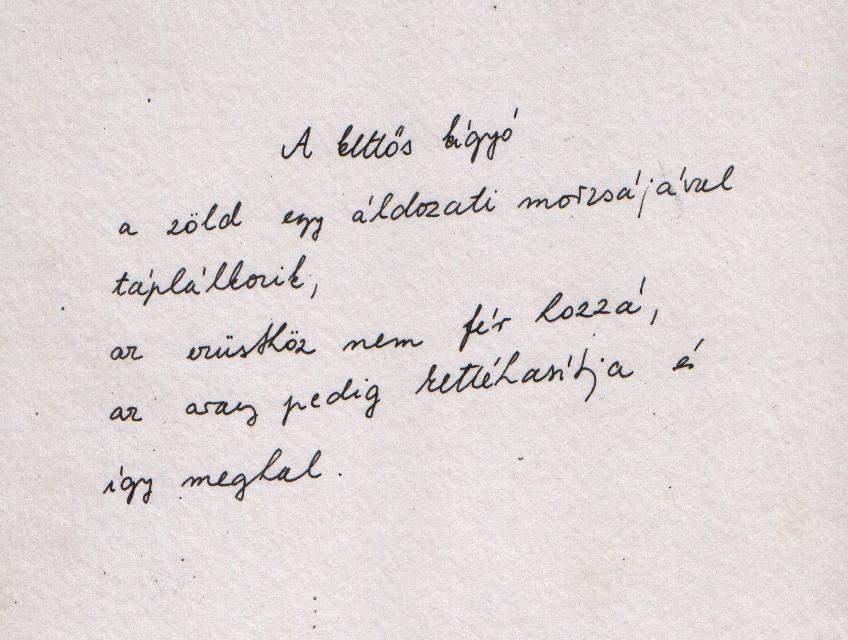 A kettős kígyó
a zöld egy áldozati morzsájával
táplálkozik,
az ezüsthöz nem fér hozzá,
az arany pedig kettéhasítja és
így meghal.